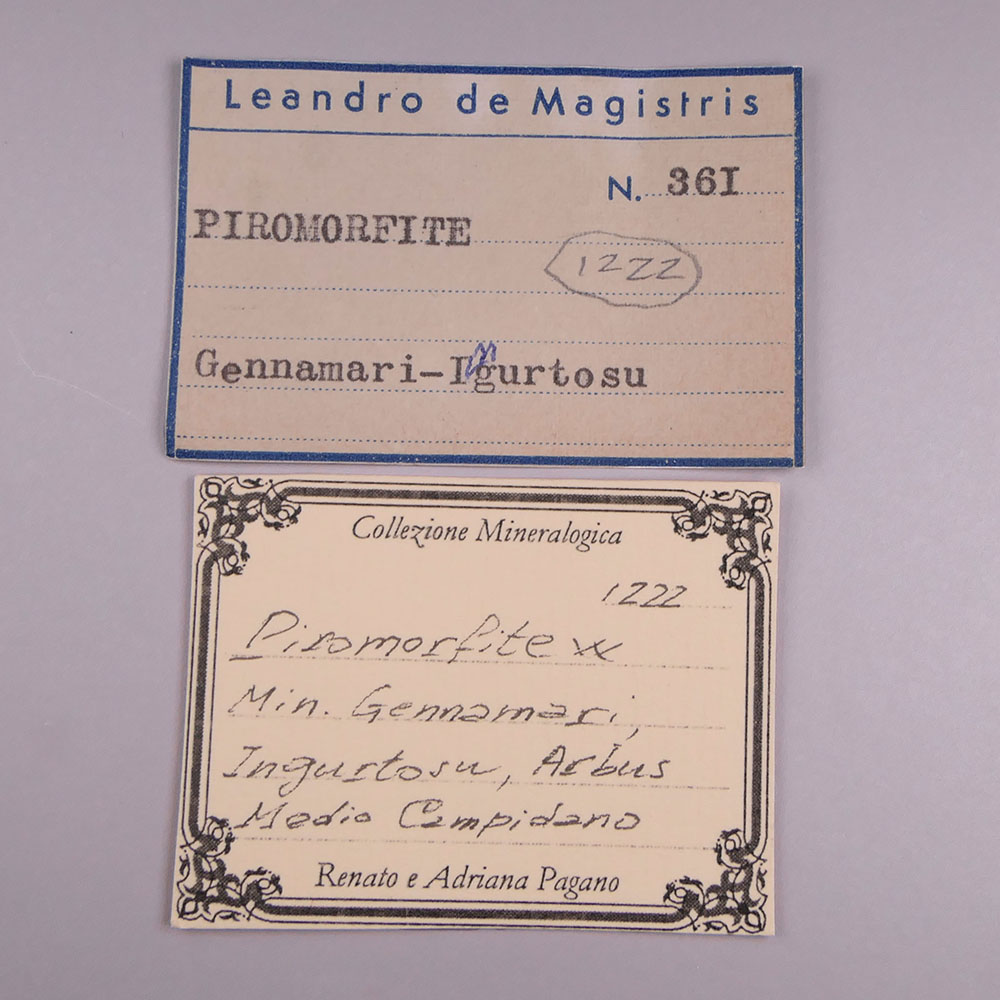 Leandro de Magistris
N. 36I
PIROMORFITE
1222
Gennamari-Ingurtosu
Collezione Mineralogica
1222
Piromorfite xx
Min. Gennamari,
Ingurtosu, Arbus
Medio Campidano
Renato e Adriana Pagano